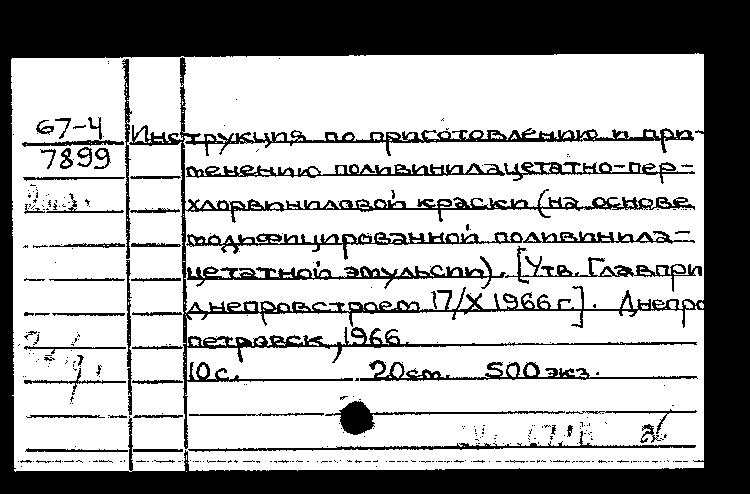 67-4 Инструкция по приготовлению и при-
7899 менению поливинилацетатно-пер-
хлорвиниловой краски (на основе
модифицированной поливинила-
цетатной эмульсии). [Утв. Главпри
днепровстроем 17/X 1966 г.]. Днепро
петровск, 1966.
10 с. 20 см. 500 экз.